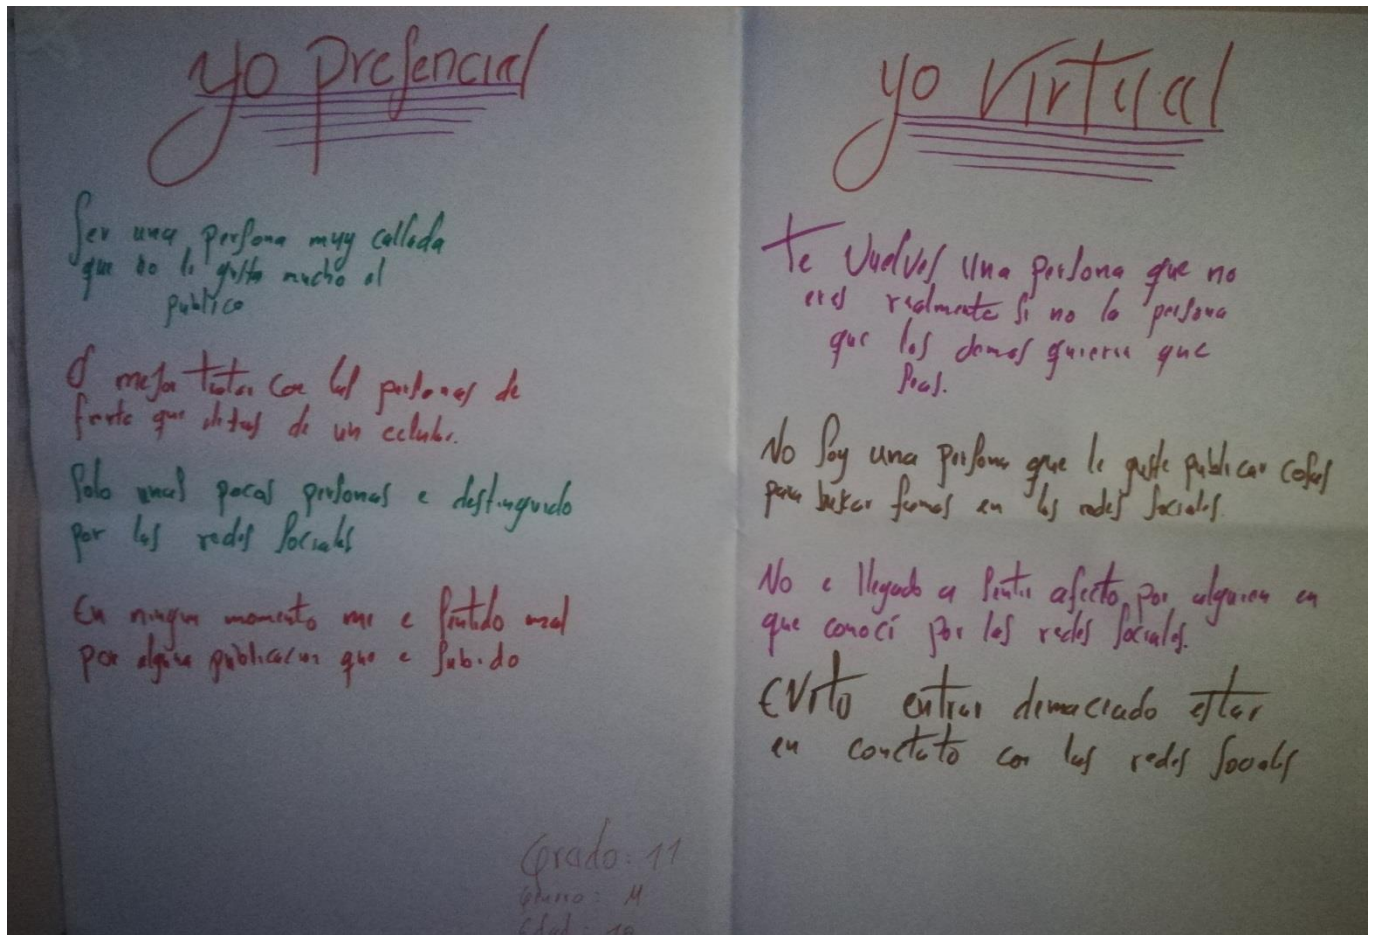 yo presencial
Ser una persona muy callada
que no le gusta mucho el
publico
Es mejor tratar con las personas de
frente que detras de un celular.
Solo unas pocas personas e destinguido
por las redes sociales
En ningun momento me e sentido mal
por alguna publicacion que e subido
Grado: 11
Genero: M
Edad: 18
yo Virtual
Te Vuelves una persona que no
eres realmente si no la persona
que los demas quieren que
seas.
No soy una persona que le guste publicar cosas
para buscar fama en las redes sociales.
No e llegado a sentir afecto por alguien en
que conocí por las redes sociales.
EVito entrar demaciado estar
en conctato con las redes sociales